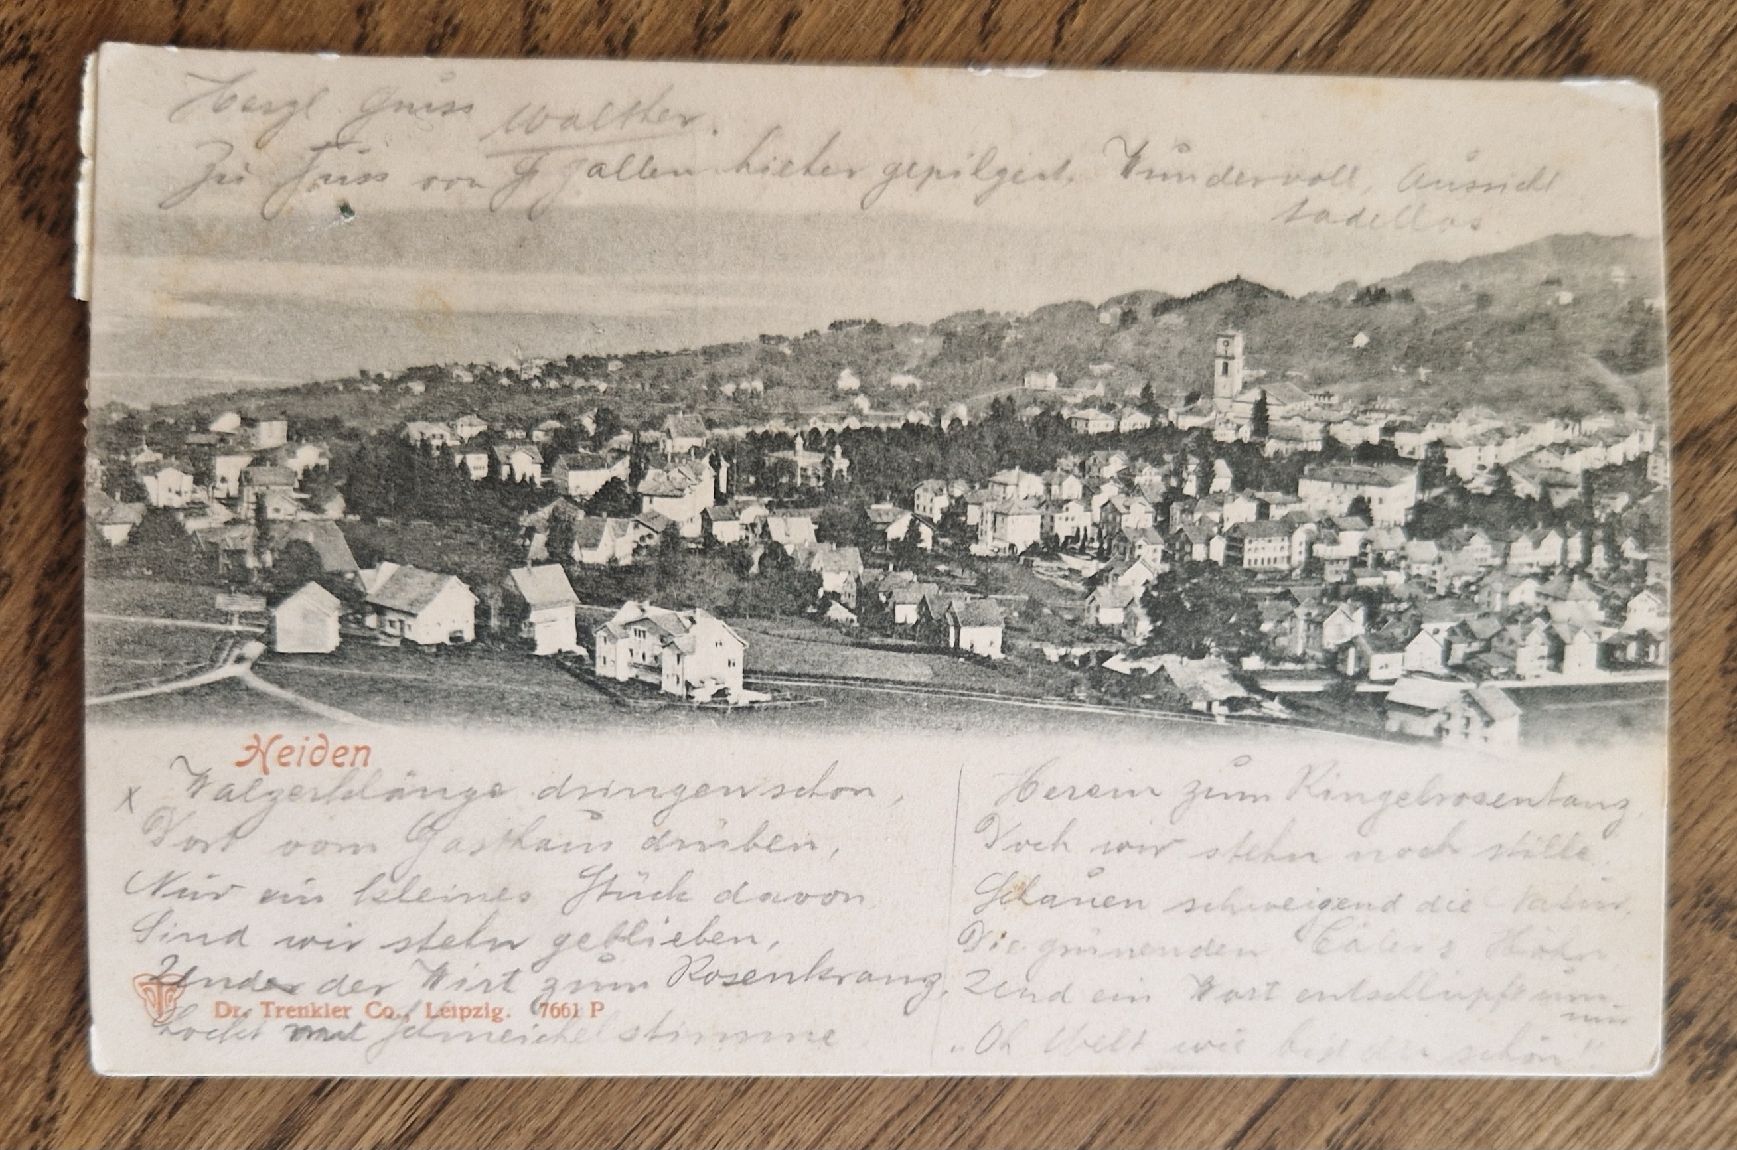 Herzl Gruss Walther.
Zu Fuss von St gallen hieher gepilgert. Wundervoll, Aussicht
tadellos.
Heiden
x Walzerklänge dringen schon,
Dort vom Gasthaus drüben,
Nur ein kleines Stück davon
Sind wir stehn geblieben,
Und der Wirt zum Rosenkranz,
Lockt mit schmeichel stimme
Dr. Trenkler Co., Leipzig. 7661 P
Herein zum Ringelrosentanz,
Doch wir stehn noch stille,
Schauen schweigend die Natur,
Die grünenden Täler &
Und ein Wort entschlupft uns
nur
"Oh Welt wie bist du schön"